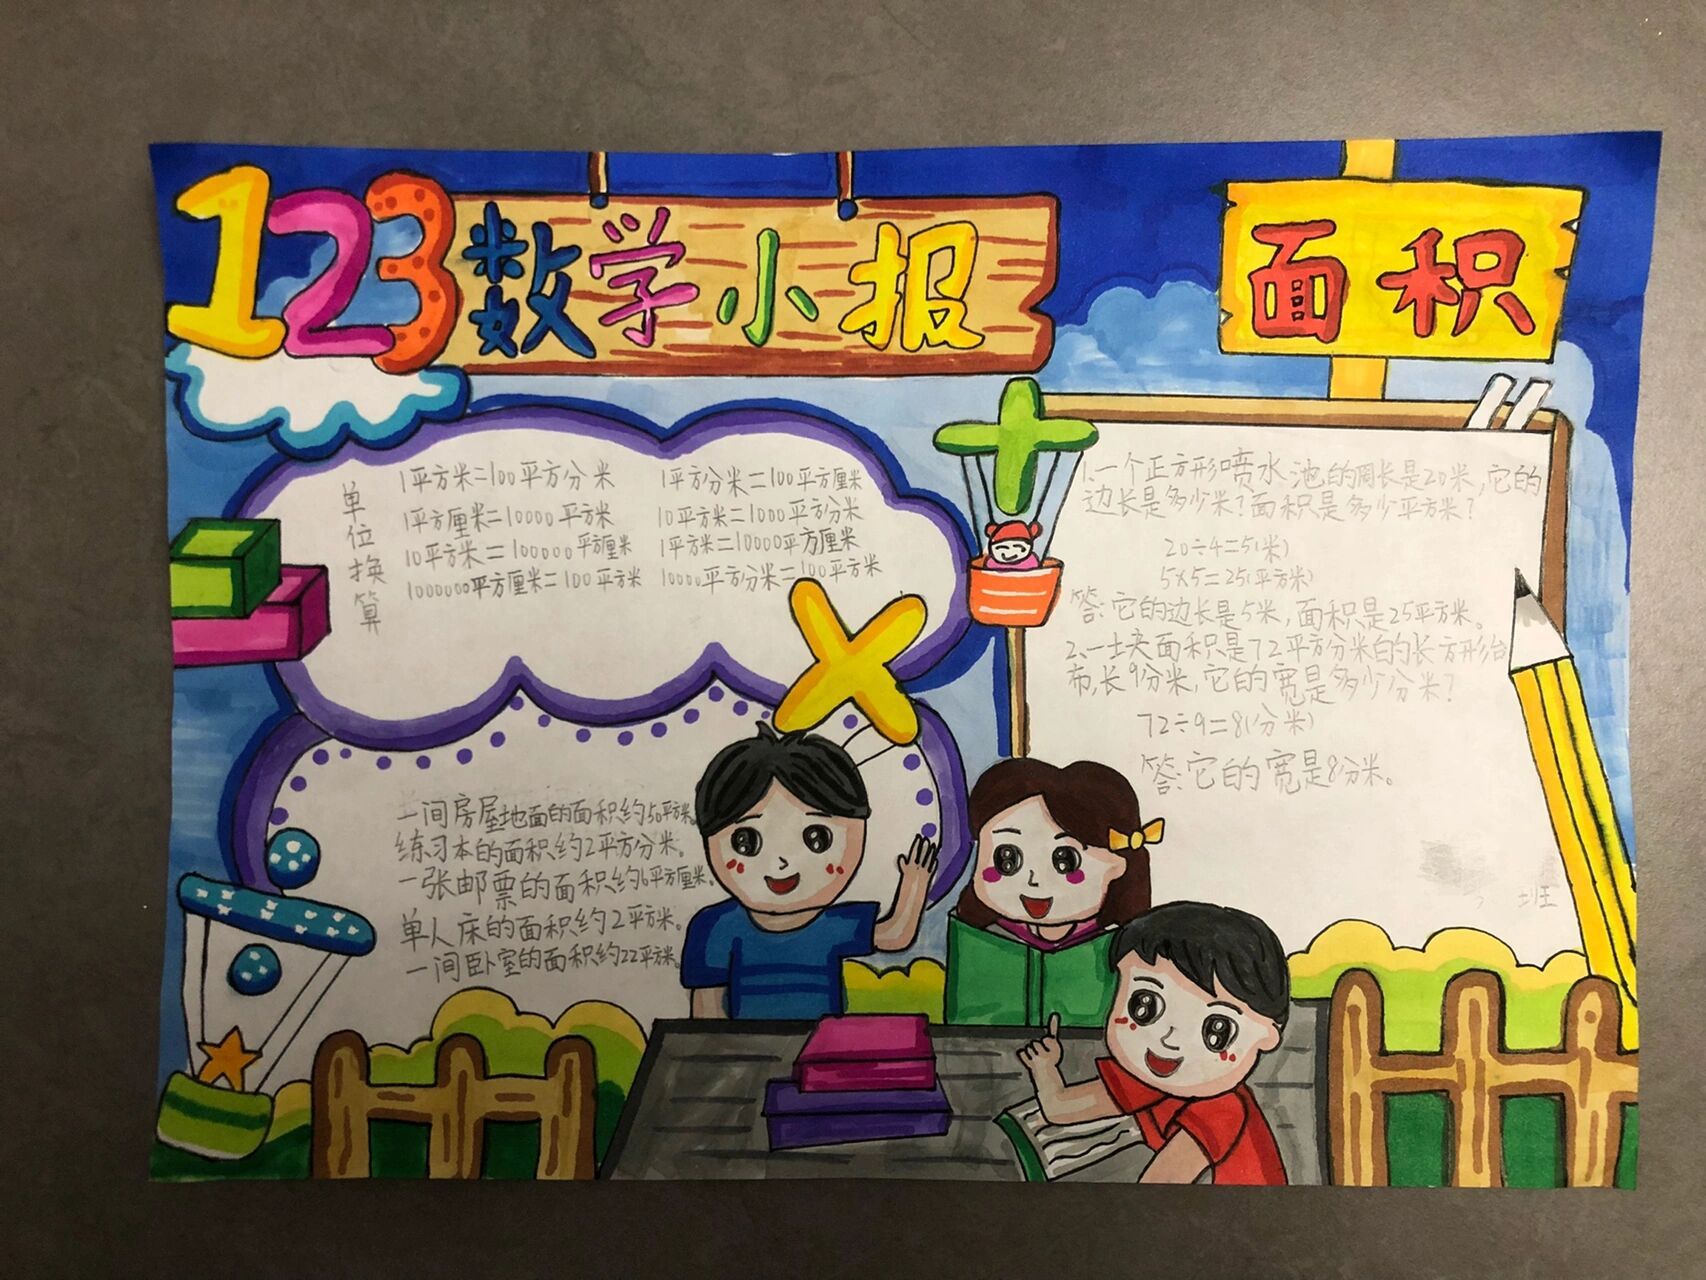 123数学小报
面积
单位换算
1平方米=100平方分米
1平方分米=100平方厘米
1平方厘米=10000平方米
10平方米=1000平方分米
10平方米=100000平方厘米
1平方米=10000平方厘米
1000000平方厘米=100平方米
10000平方分米=100平方米
一间房屋地面的面积约50平方米。
练习本的面积约2平方分米。
一张邮票的面积约6平方厘米。
单人床的面积约2平方米。
一间卧室的面积约22平方米。
1.一个正方形喷水池的周长是20米,它的
边长是多少米?面积是多少平方米?
20÷4=5(米)
5×5=25(平方米)
答:它的边长是5米,面积是25平方米。
2.一块面积是72平方分米的长方形台
布,长9分米,它的宽是多少分米?
72÷9=8(分米)
答:它的宽是8分米。
班